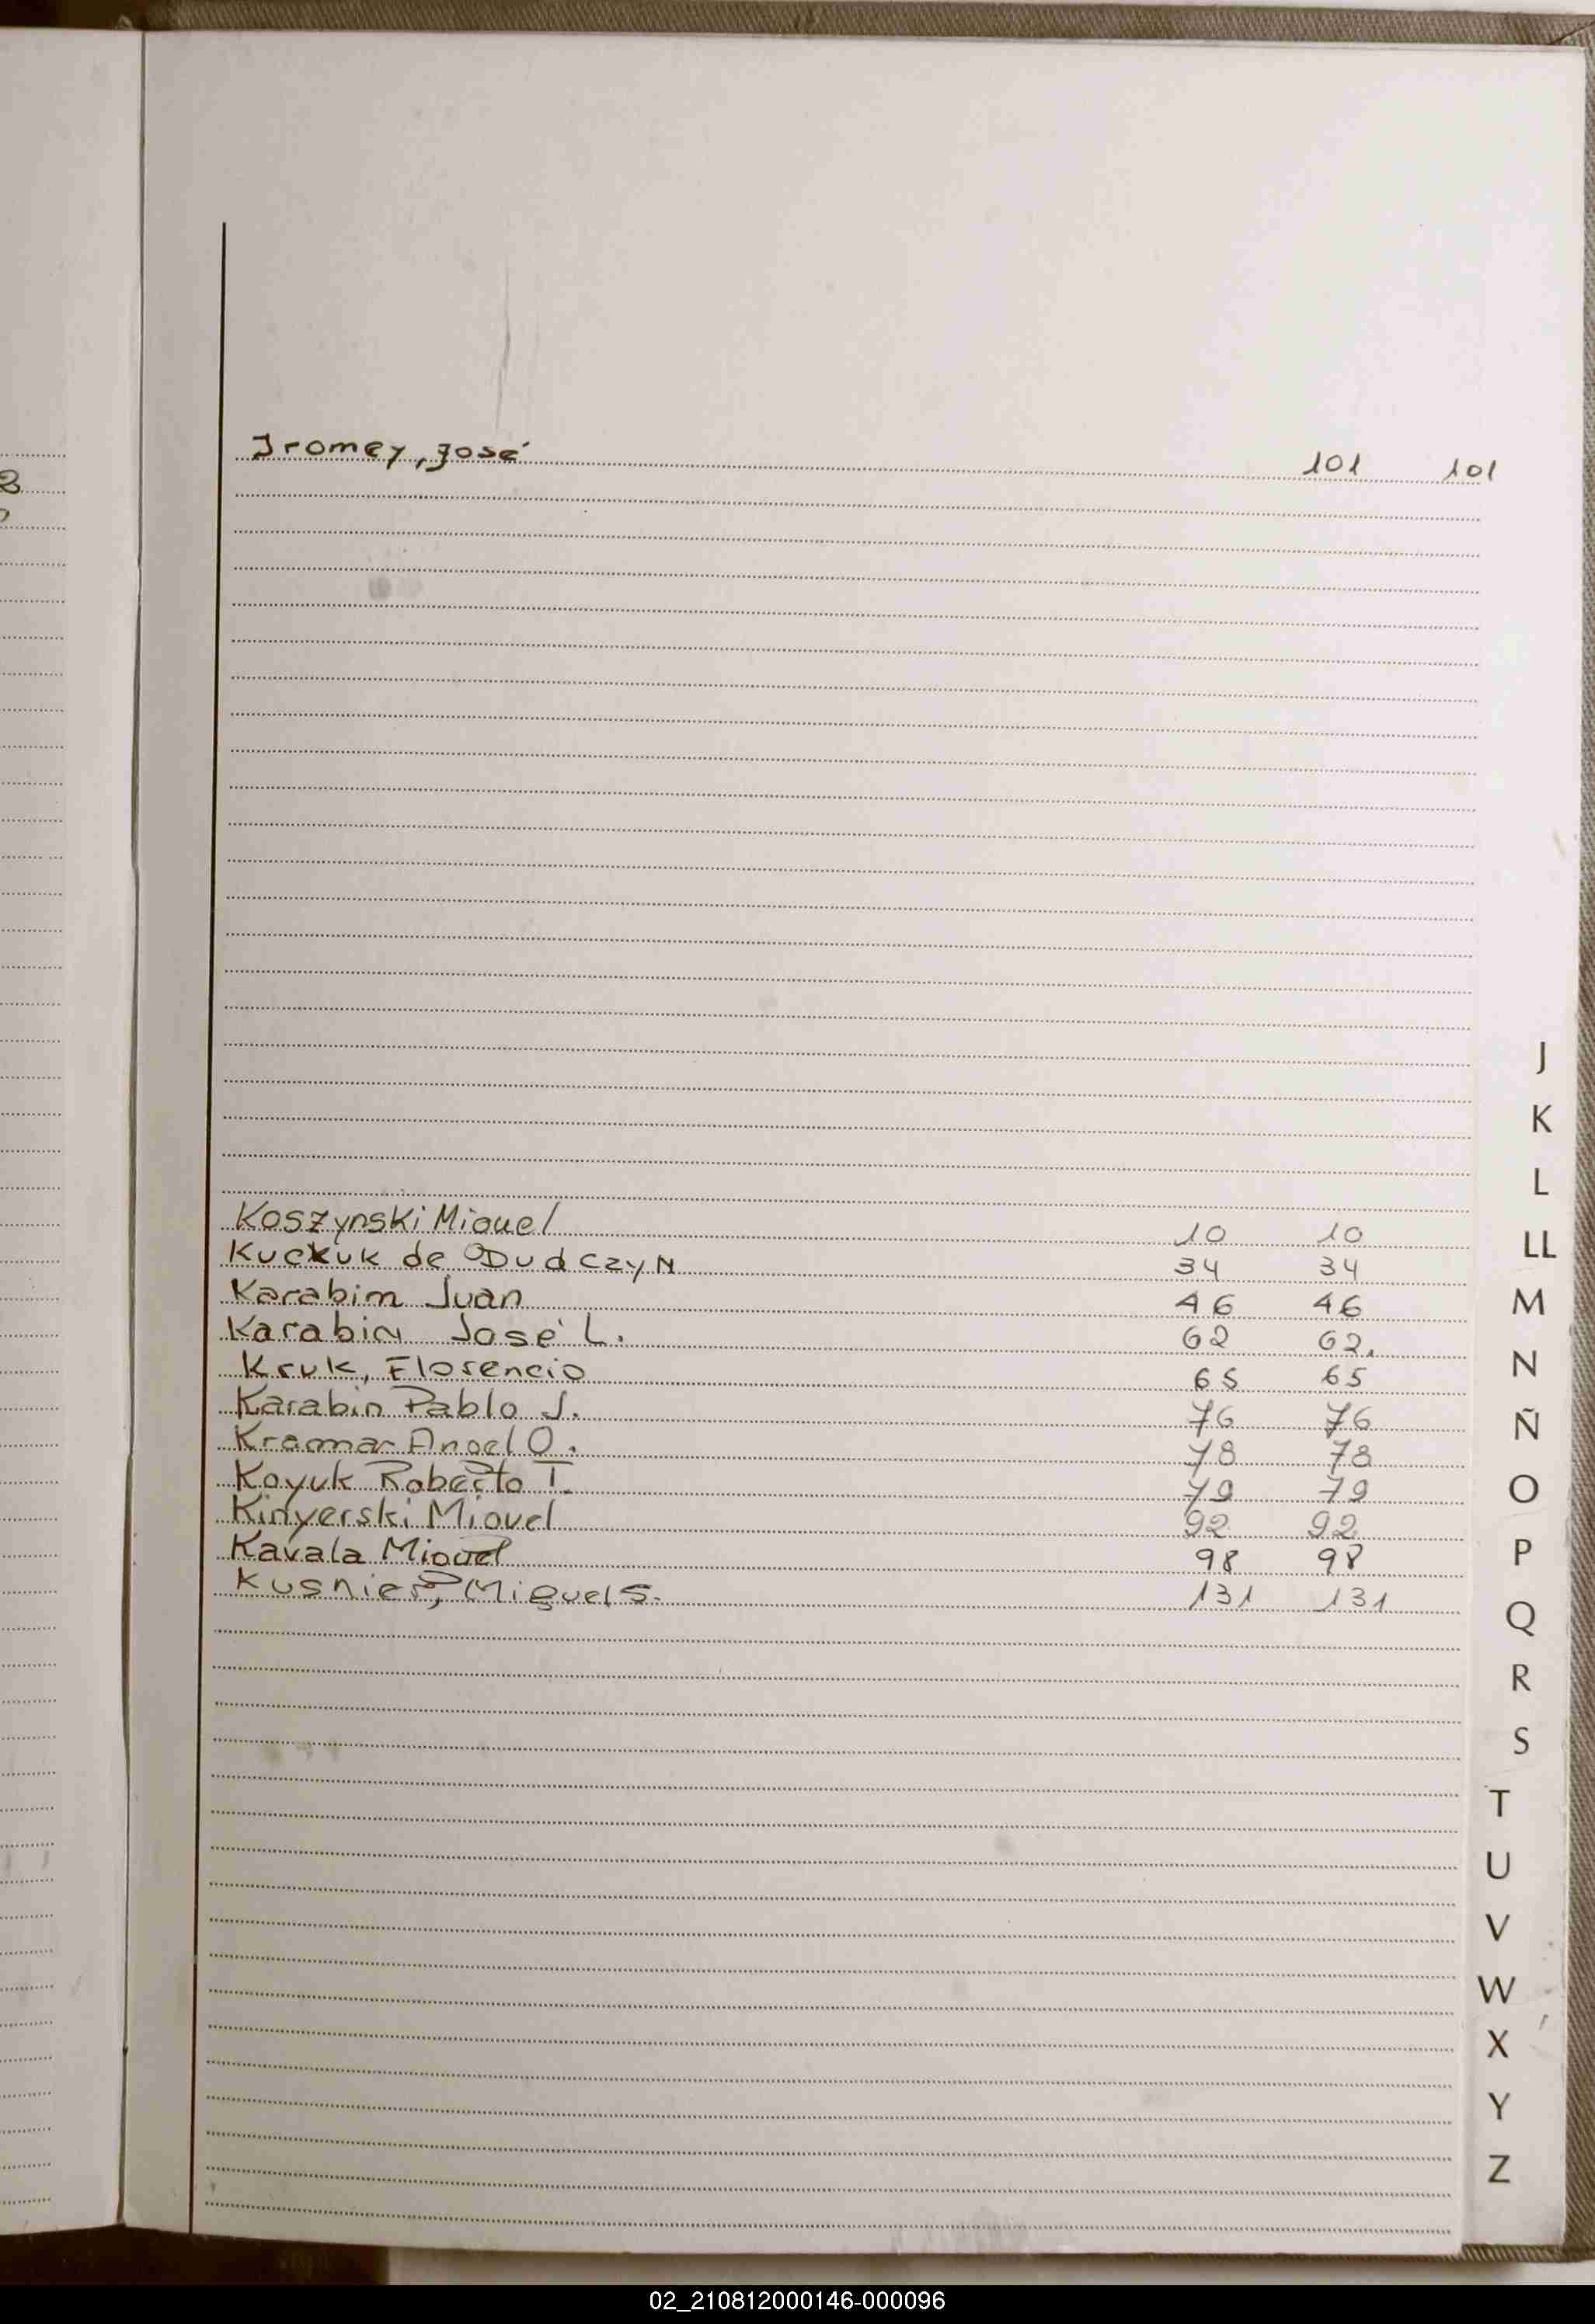 Jromey, José 101 101
Koszynski Miguel 10 10
Kuckuk de Dudczyn 34 34
Karabim Juan 46 46
Karabin José L. 62 62.
Kruk, Florencio 65 65
Karabin Pablo J. 76 76
Kramar Angel O. 78 78
Koyuk Roberto T. 79 79
Kinyerski Miguel 92 92
Kavala Miguel 98 98
Kusnier, Miguel S. 131 131
J
K
L
LL
M
N
Ñ
O
P
Q
R
S
T
U
V
W
X
Y
Z
02_210812000146-000096